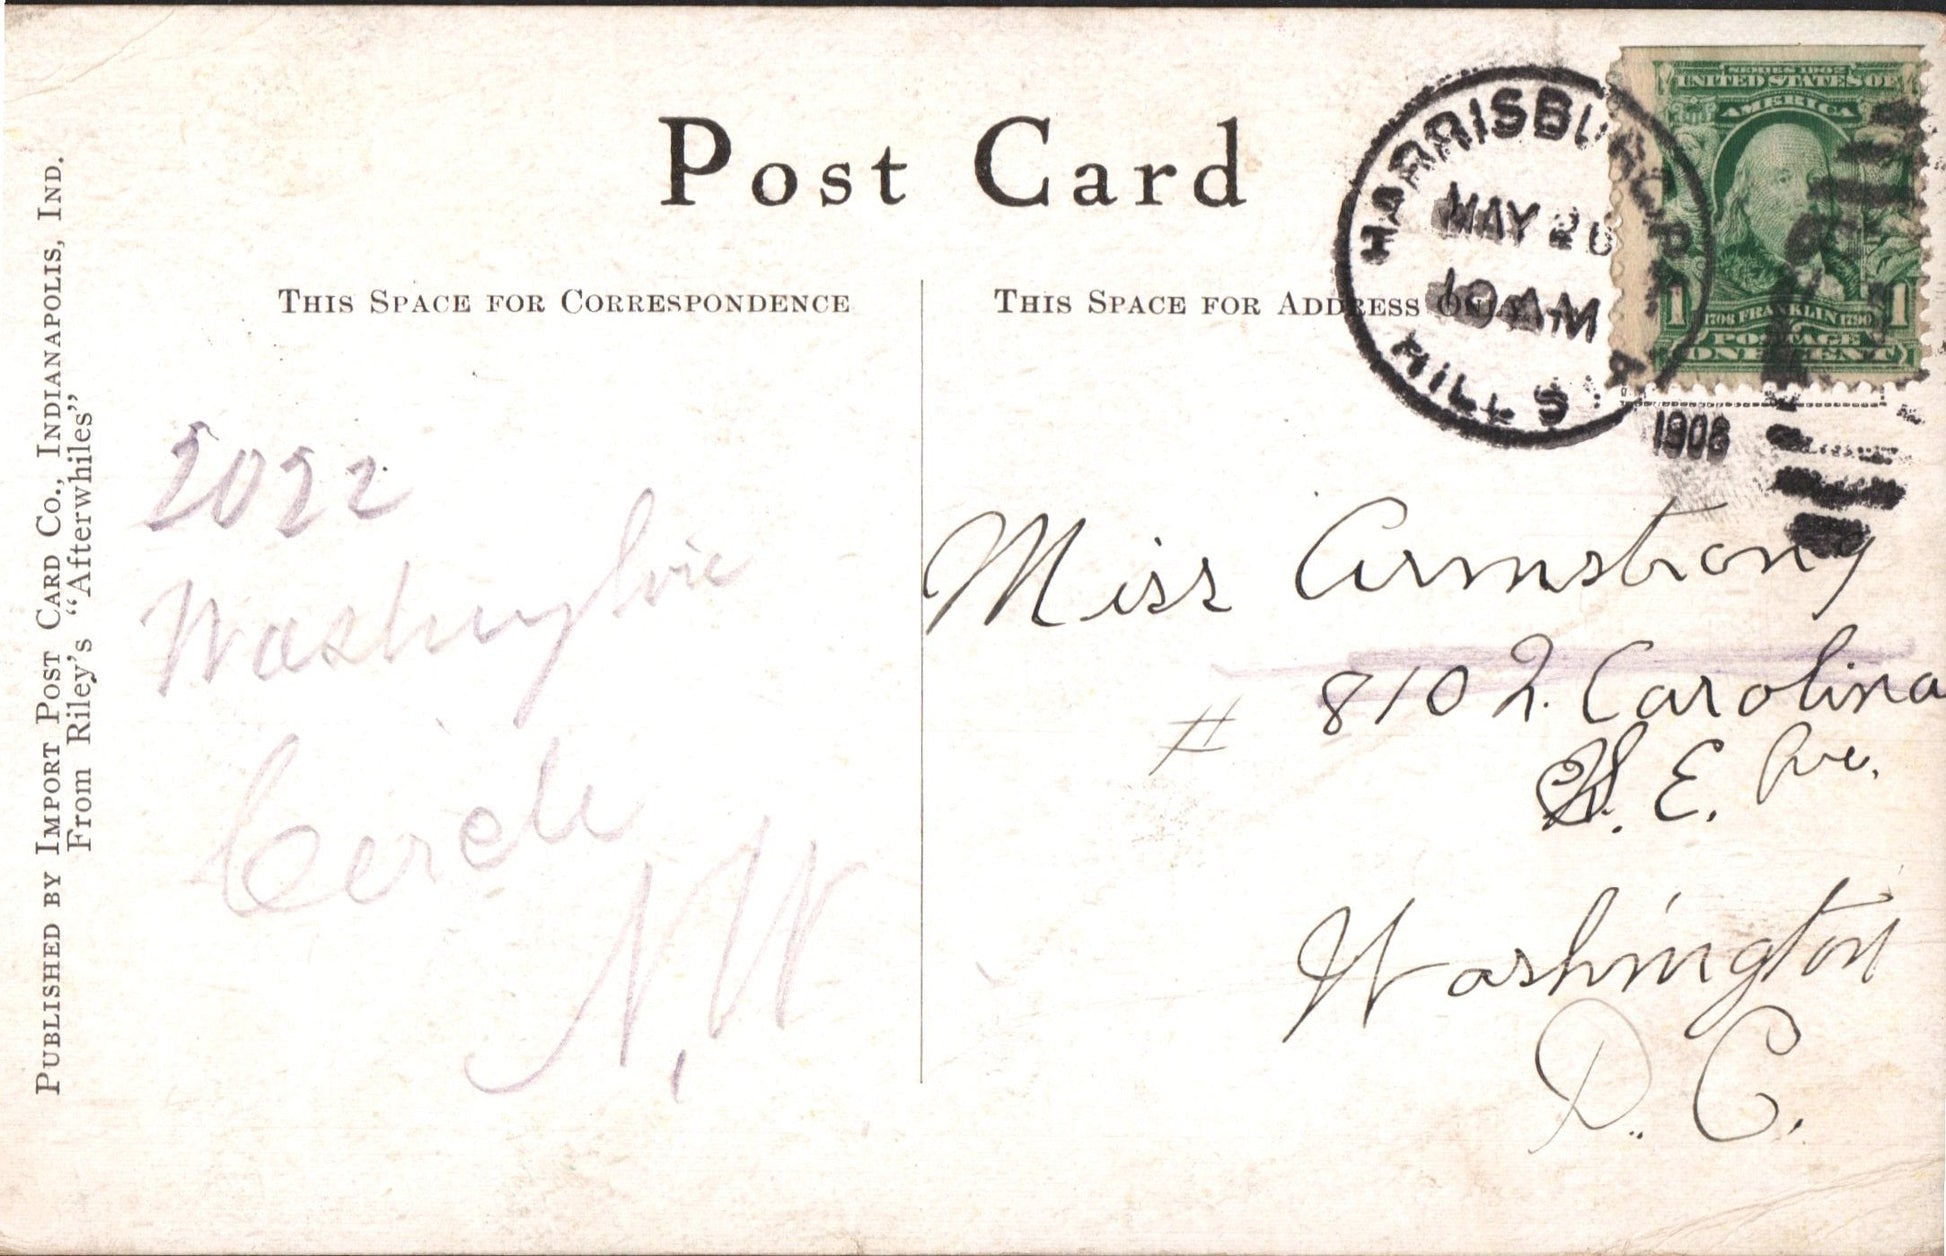 Post Card
THIS SPACE FOR CORRESPONDENCE
THIS SPACE FOR ADDRESS ONLY
HARRISBURG, PA.
MAY 26
10 AM
HILL STA.
1908
SERIES 1902
UNITED STATES OF
AMERICA
1 1
1706 FRANKLIN 1790
POSTAGE
ONE CENT
PUBLISHED BY IMPORT POST CARD CO., INDIANAPOLIS, IND.
From Riley's "Afterwhiles"
2022
Washington
Circle
N. W
Miss Armstrong
# 810 2. Carolina
S. E. Ave.
Washington
D. C.